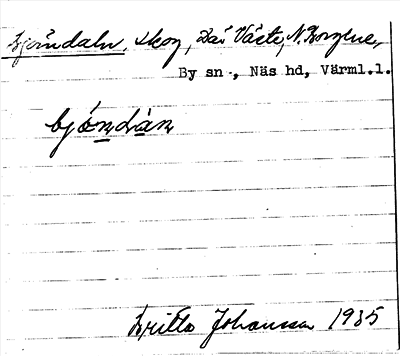 Björndaln, skog, Där Väste, N. Borgene,
By sn., Näs hd, Värml.l.
bjö̀ndàn
Britta Johansson 1935